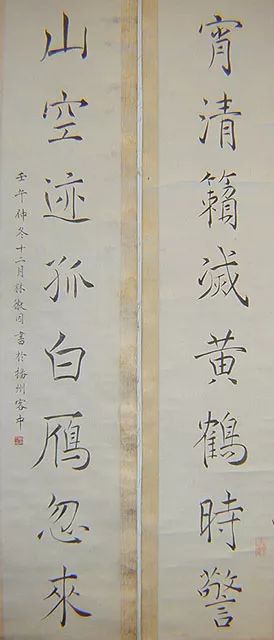 宵清籟滅黄鶴時警
山空迹孤白鴈忽來
壬午仲冬十二月 書於揚州客中